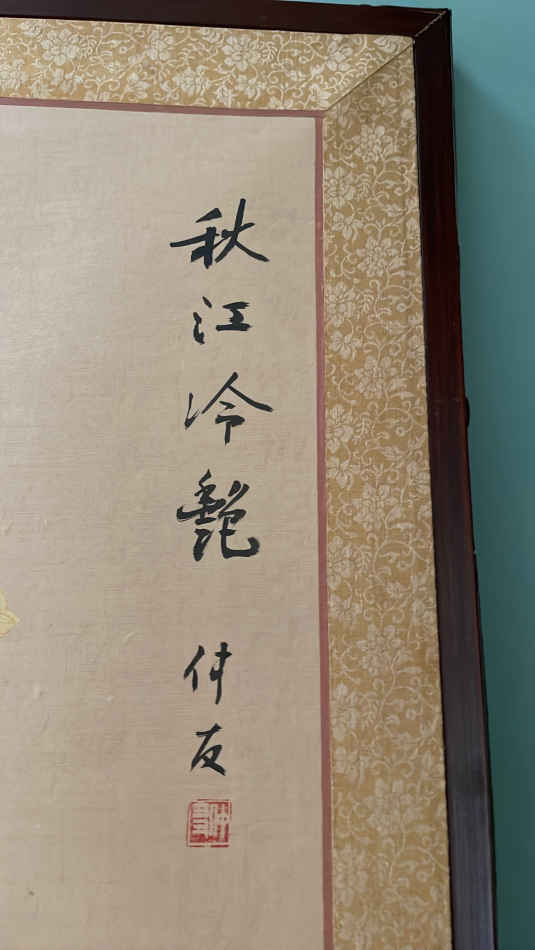 秋江冷艷
仲友